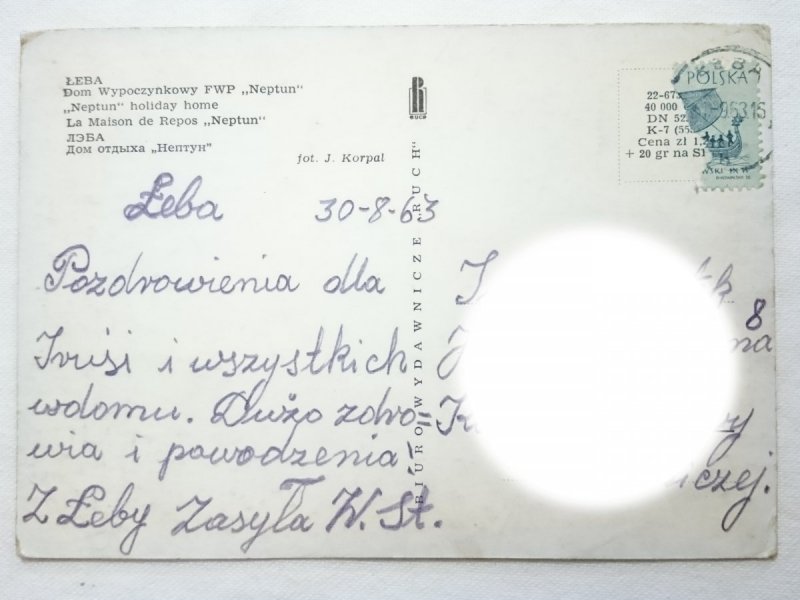 ŁEBA
Dom Wypoczynkowy FWP „Neptun"
„Neptun" holiday home
La Maison de Repos „Neptun"
ЛЭБА
Дом отдыха „Нептун"
fot. J. Korpal
RUCH
BIURO WYDAWNICZE „RUCH"
22-673
40 000
DN
K-7
Cena zł
+ 20 gr na
POLSKA
Łeba 30-8-63
Pozdrowienia dla
Irusi i wszystkich
wdomu. Dużo zdro=
wia i powodzenia!
Z Łeby Zasyła W. St.
8